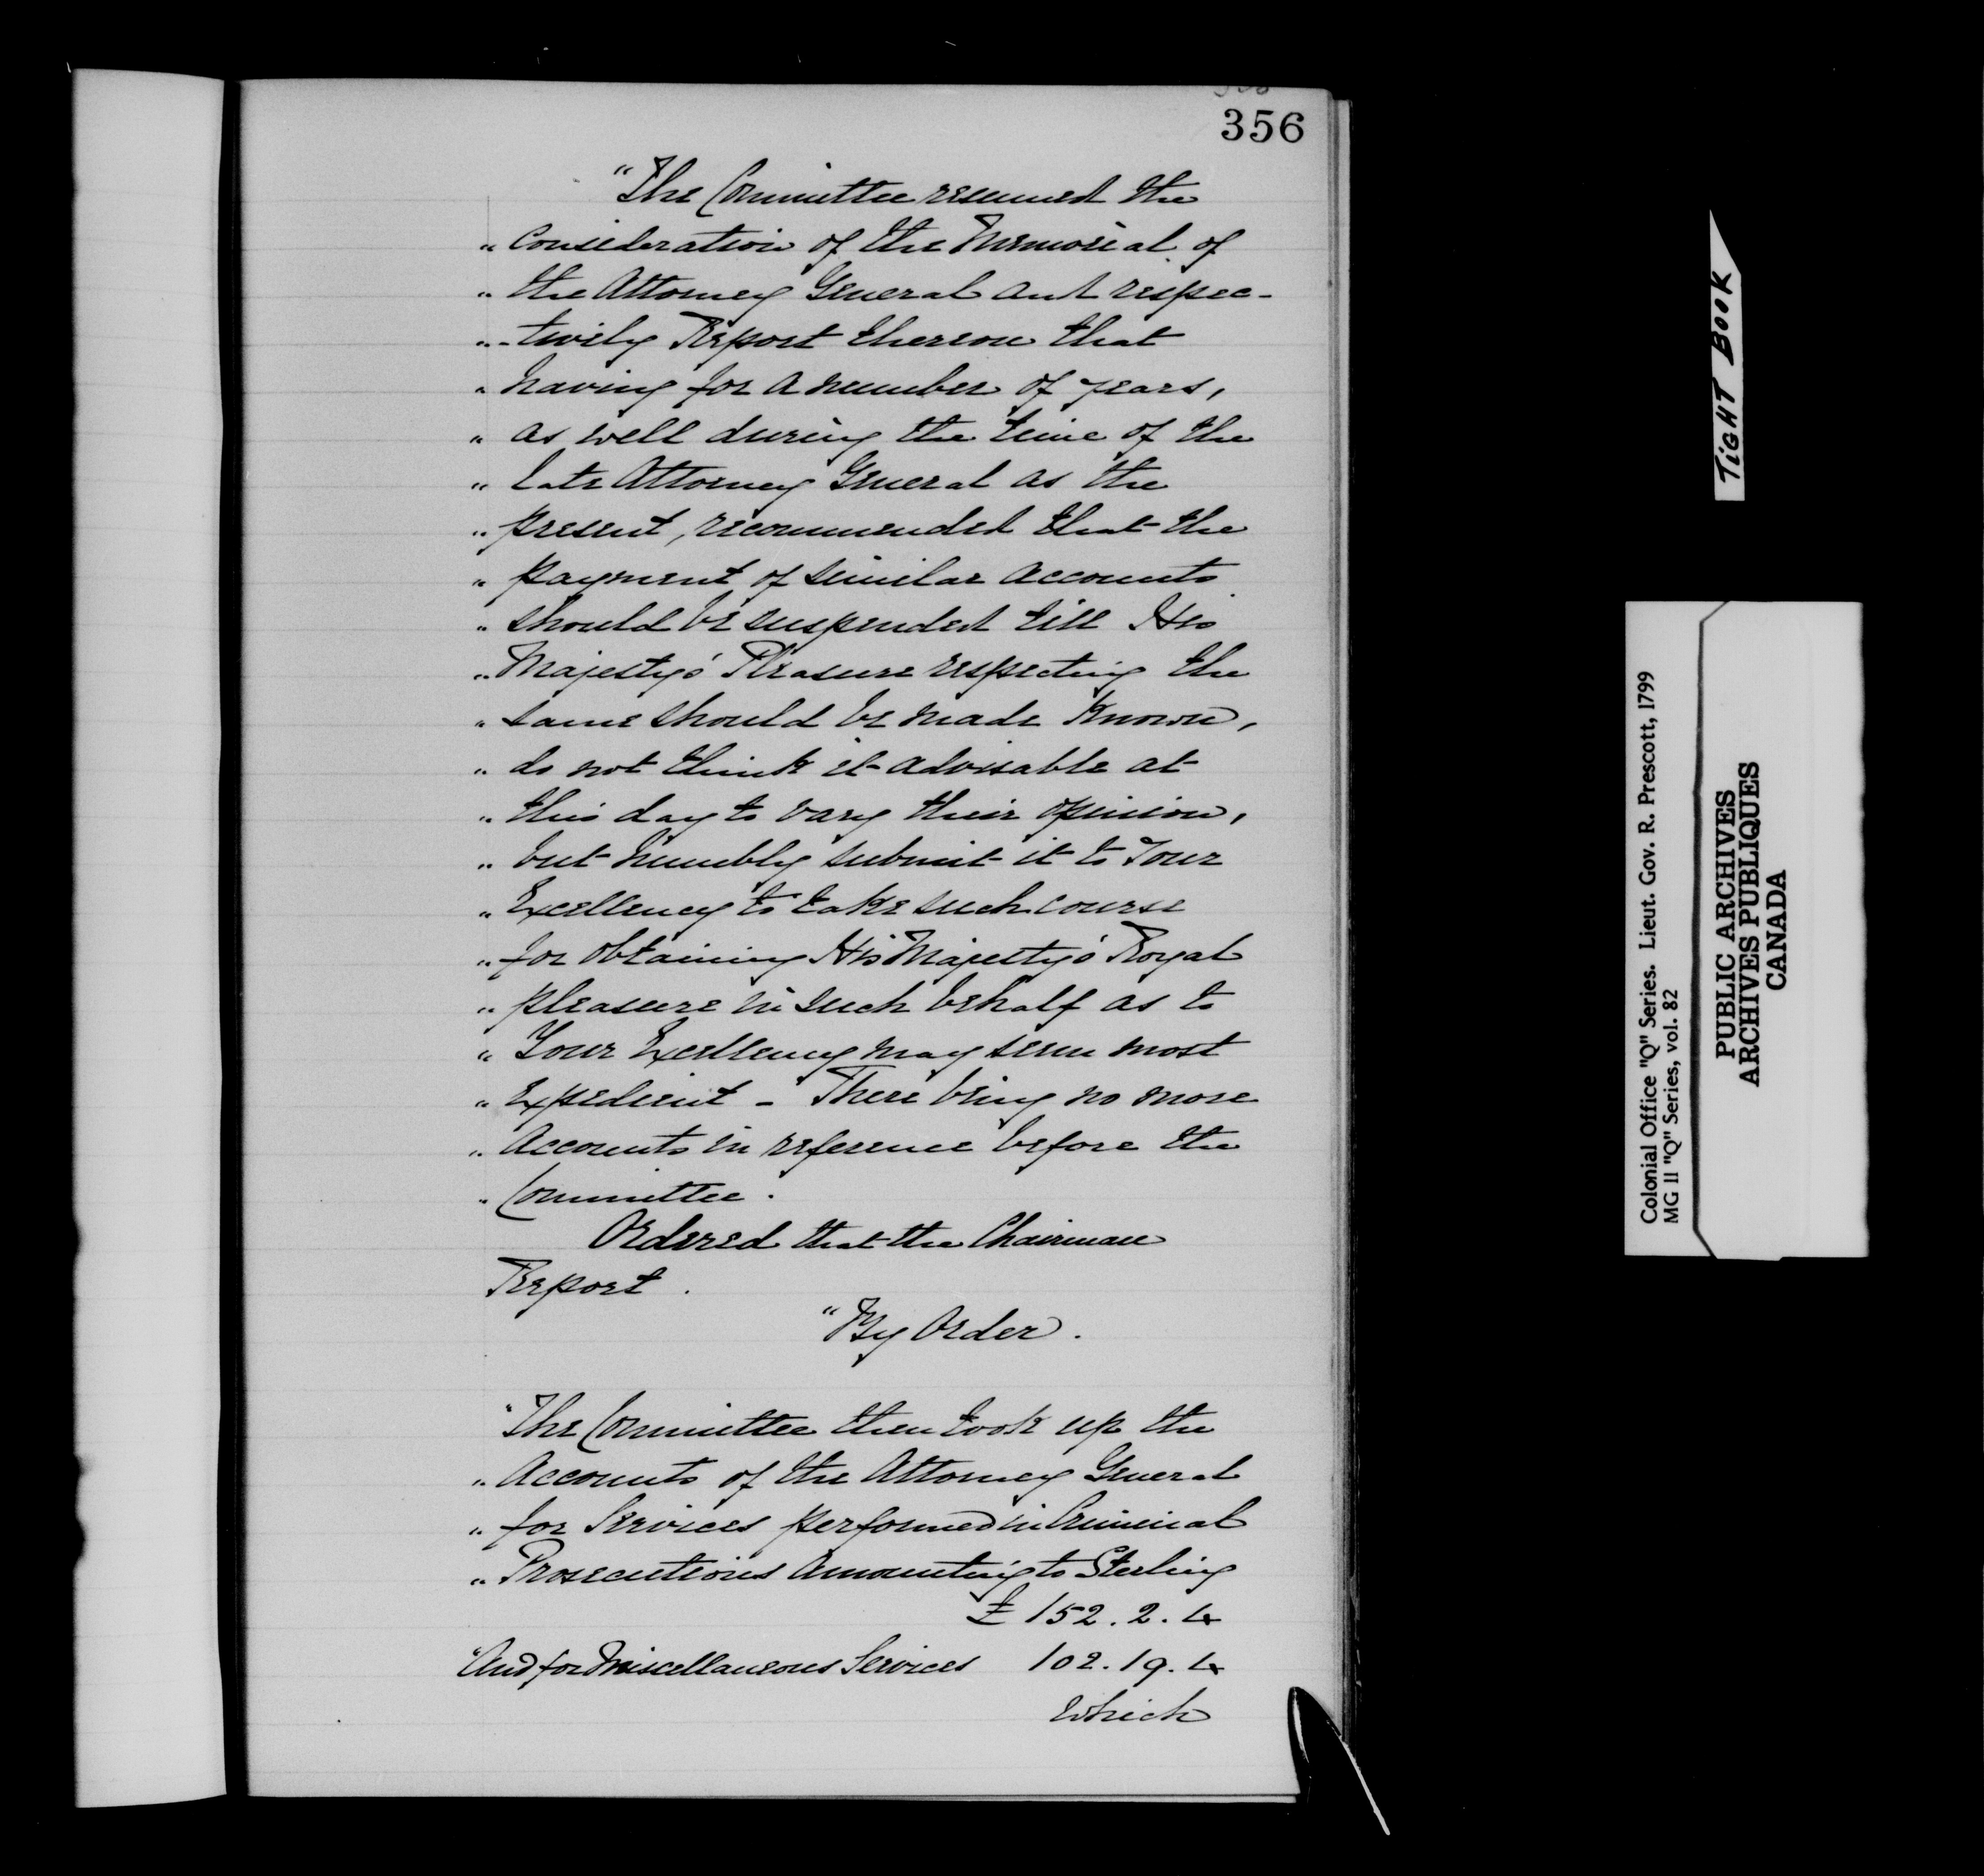 356
"The Committee resumed the
" Consideration of the Memorial of
" the Attorney General and respec-
" -tively Report thereon that
" having for a number of years,
" as well during the time of the
" late Attorney General as the
" present, recommended that the
" payment of similar accounts
" should be suspended till His
" Majesty's Pleasure respecting the
" same should be made Known,
" do not think it advisable at
" this day to vary their opinion,
" but humbly submit it to Your
" Excellency to take such course
" for obtaining His Majesty's Royal
" pleasure in such behalf as to
" Your Excellency may seem most
" Expedient - There being no more
" Accounts in reference before the
" Committee.
Ordered that the Chairman
Report.
"By Order.
"The Committee then took up the
" Accounts of the Attorney General
" for Services performed in Criminal
" Prosecutions Amounting to Sterling
£ 152. 2. 4
"And for Miscellaneous Services 102. 19. 4
Which
TIGHT BOOK
Colonial Office "Q" Series. Lieut. Gov. R. Prescott, 1799
MG 11 "Q" Series, vol. 82
PUBLIC ARCHIVES
ARCHIVES PUBLIQUES
CANADA